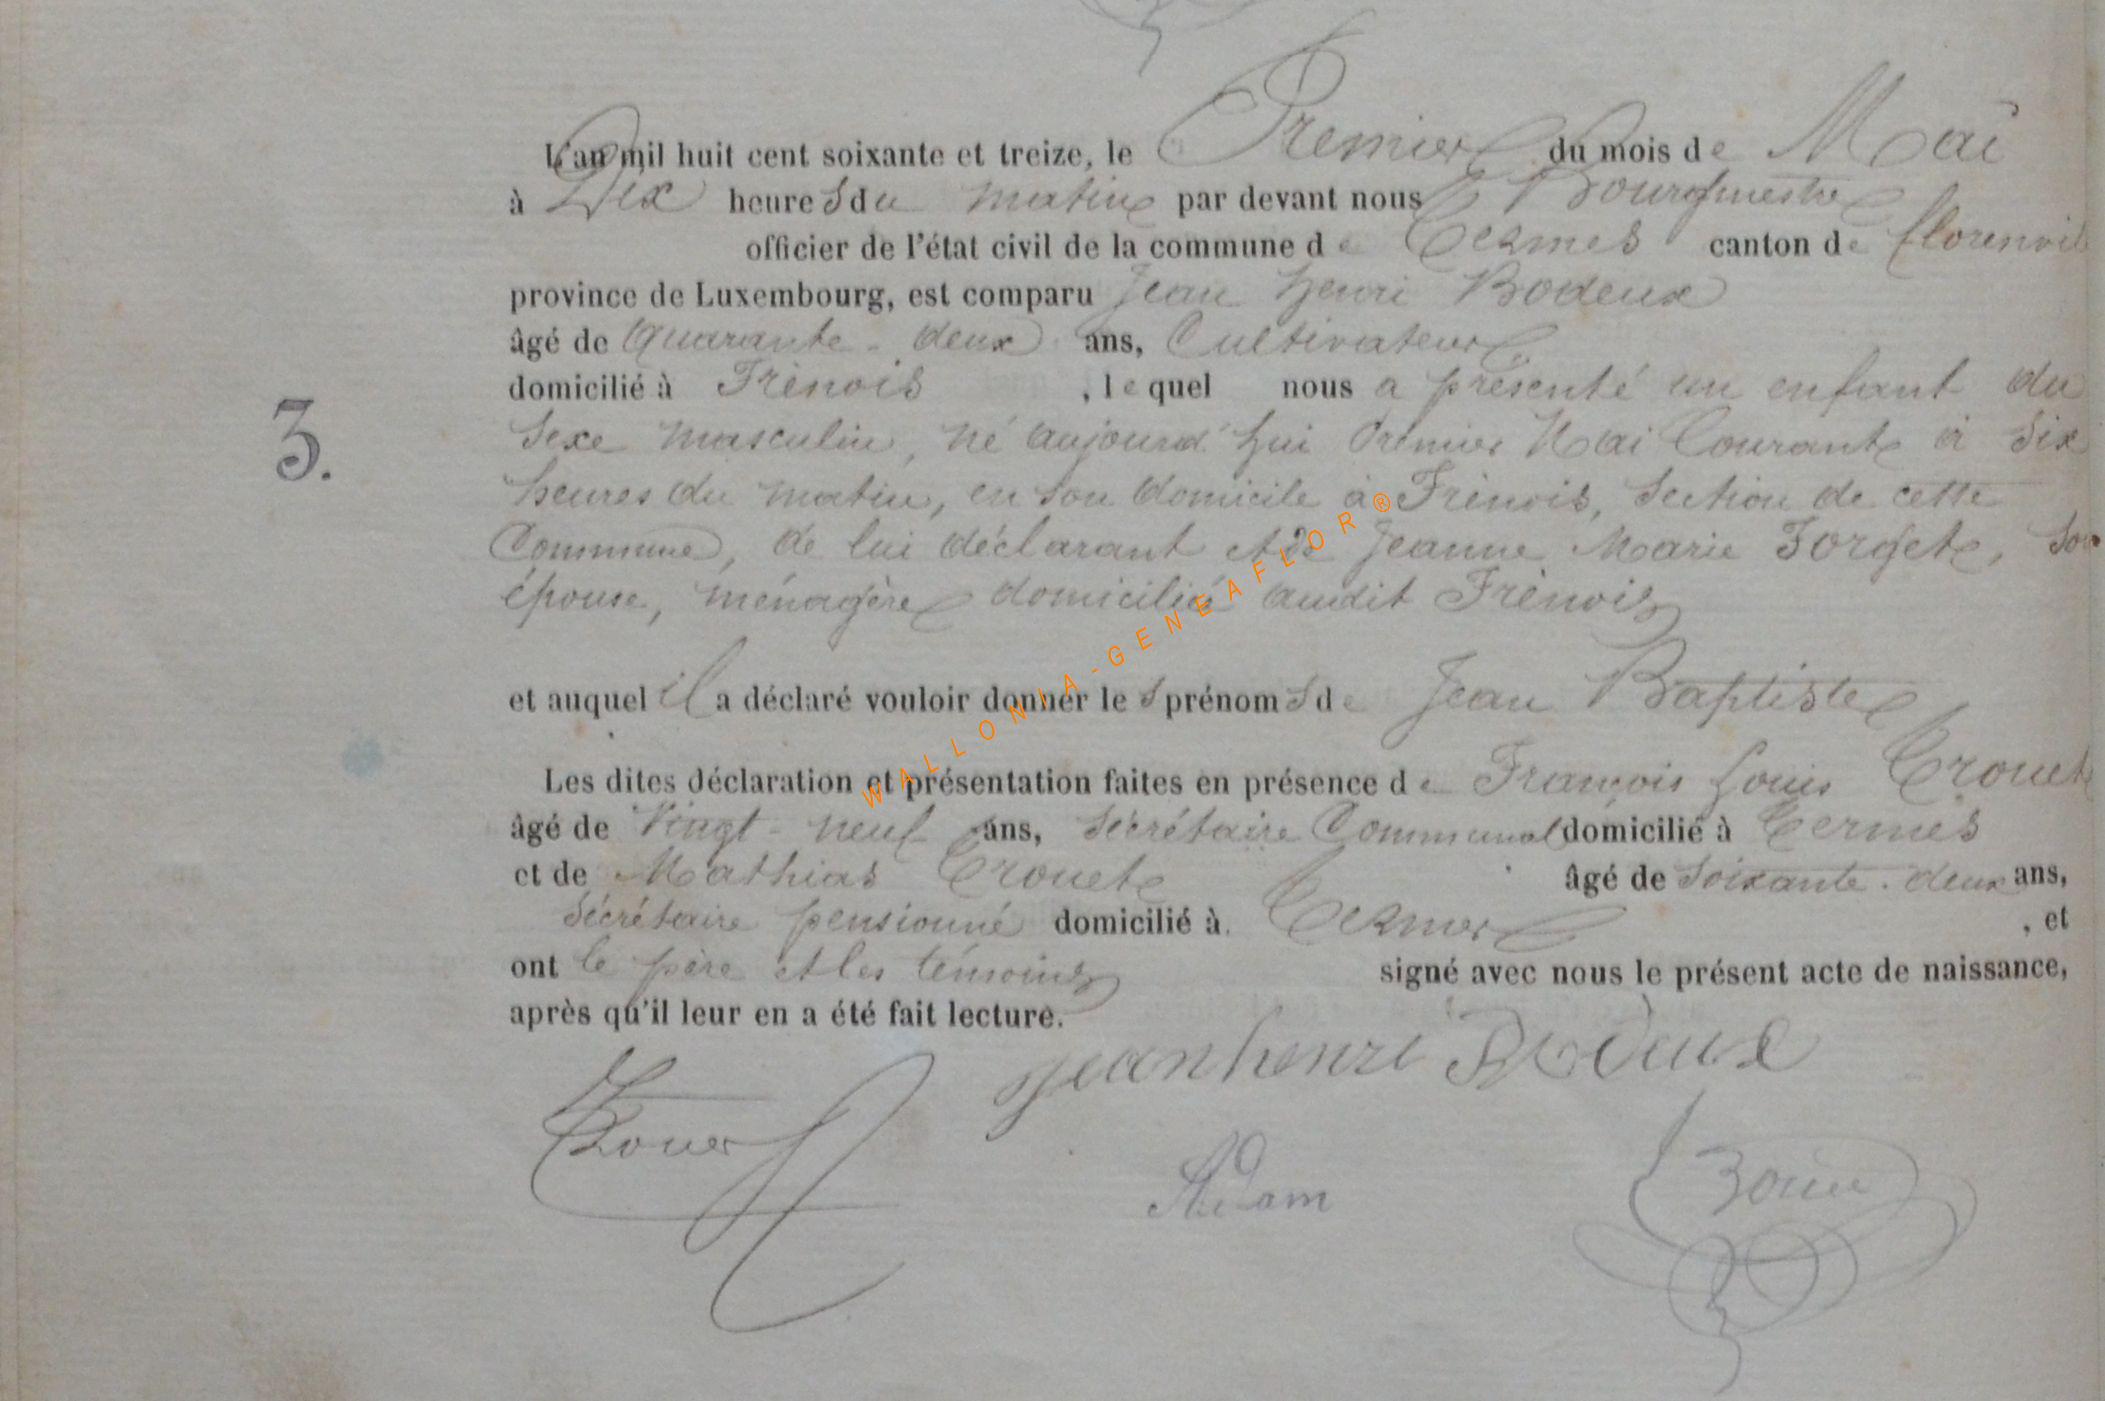 L'an mil huit cent soixante et treize, le Premier du mois de Mai
à Dix heures du matin par devant nous Bourgmestre
officier de l'état civil de la commune de Termes canton de florenvil
province de Luxembourg, est comparu Jean henri Bodeux
âgé de Quarante-deux ans, Cultivateur
domicilié à Frénois, lequel nous a présenté un enfant du
3.
Sexe masculin, né aujourd'hui Premier Mai Courant à Six
heures du matin, en son domicile à Frénois, Section de cette
Commune, de lui déclarant et de Jeanne Marie Forget, Son
épouse, ménagère domiciliée audit Frénois
et auquel il a déclaré vouloir donner les prénoms de Jean Baptiste
Les dites déclaration et présentation faites en présence de François Louis Crouet
âgé de Vingt-neuf ans, Sécrétaire Communal domicilié à Termes
et de Mathias Crouet âgé de Soixante-deux ans,
Sécrétaire pensionné domicilié à Termes, et
ont le père et les témoins signé avec nous le présent acte de naissance,
après qu'il leur en a été fait lecture.
jean henri Bodeux
Adam
WALLONIA-GENEAFLOR®